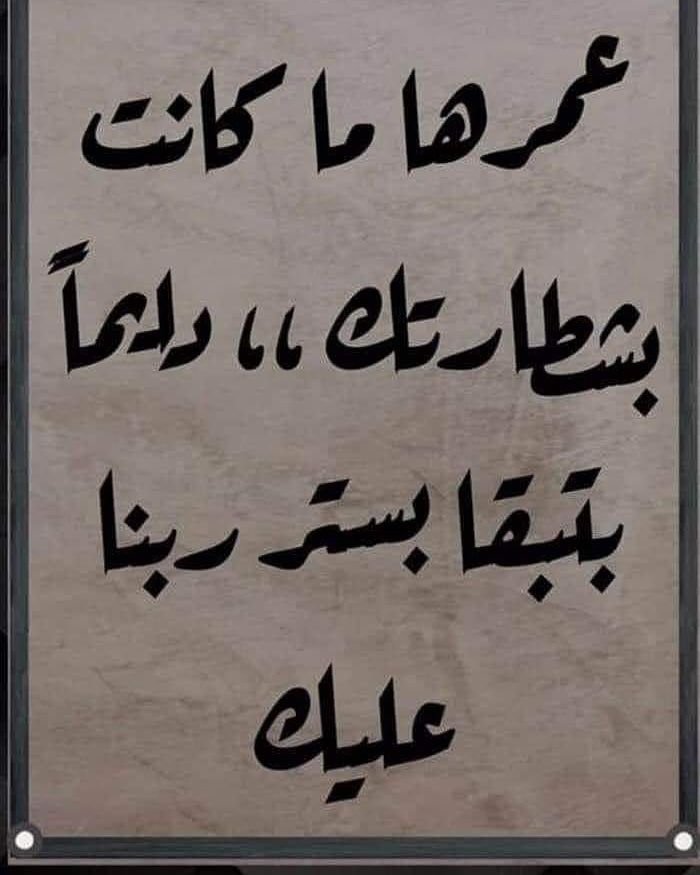 عمرها ما كانت
بشطارتك ،، دايماً
بتبقا بستر ربنا
عليك